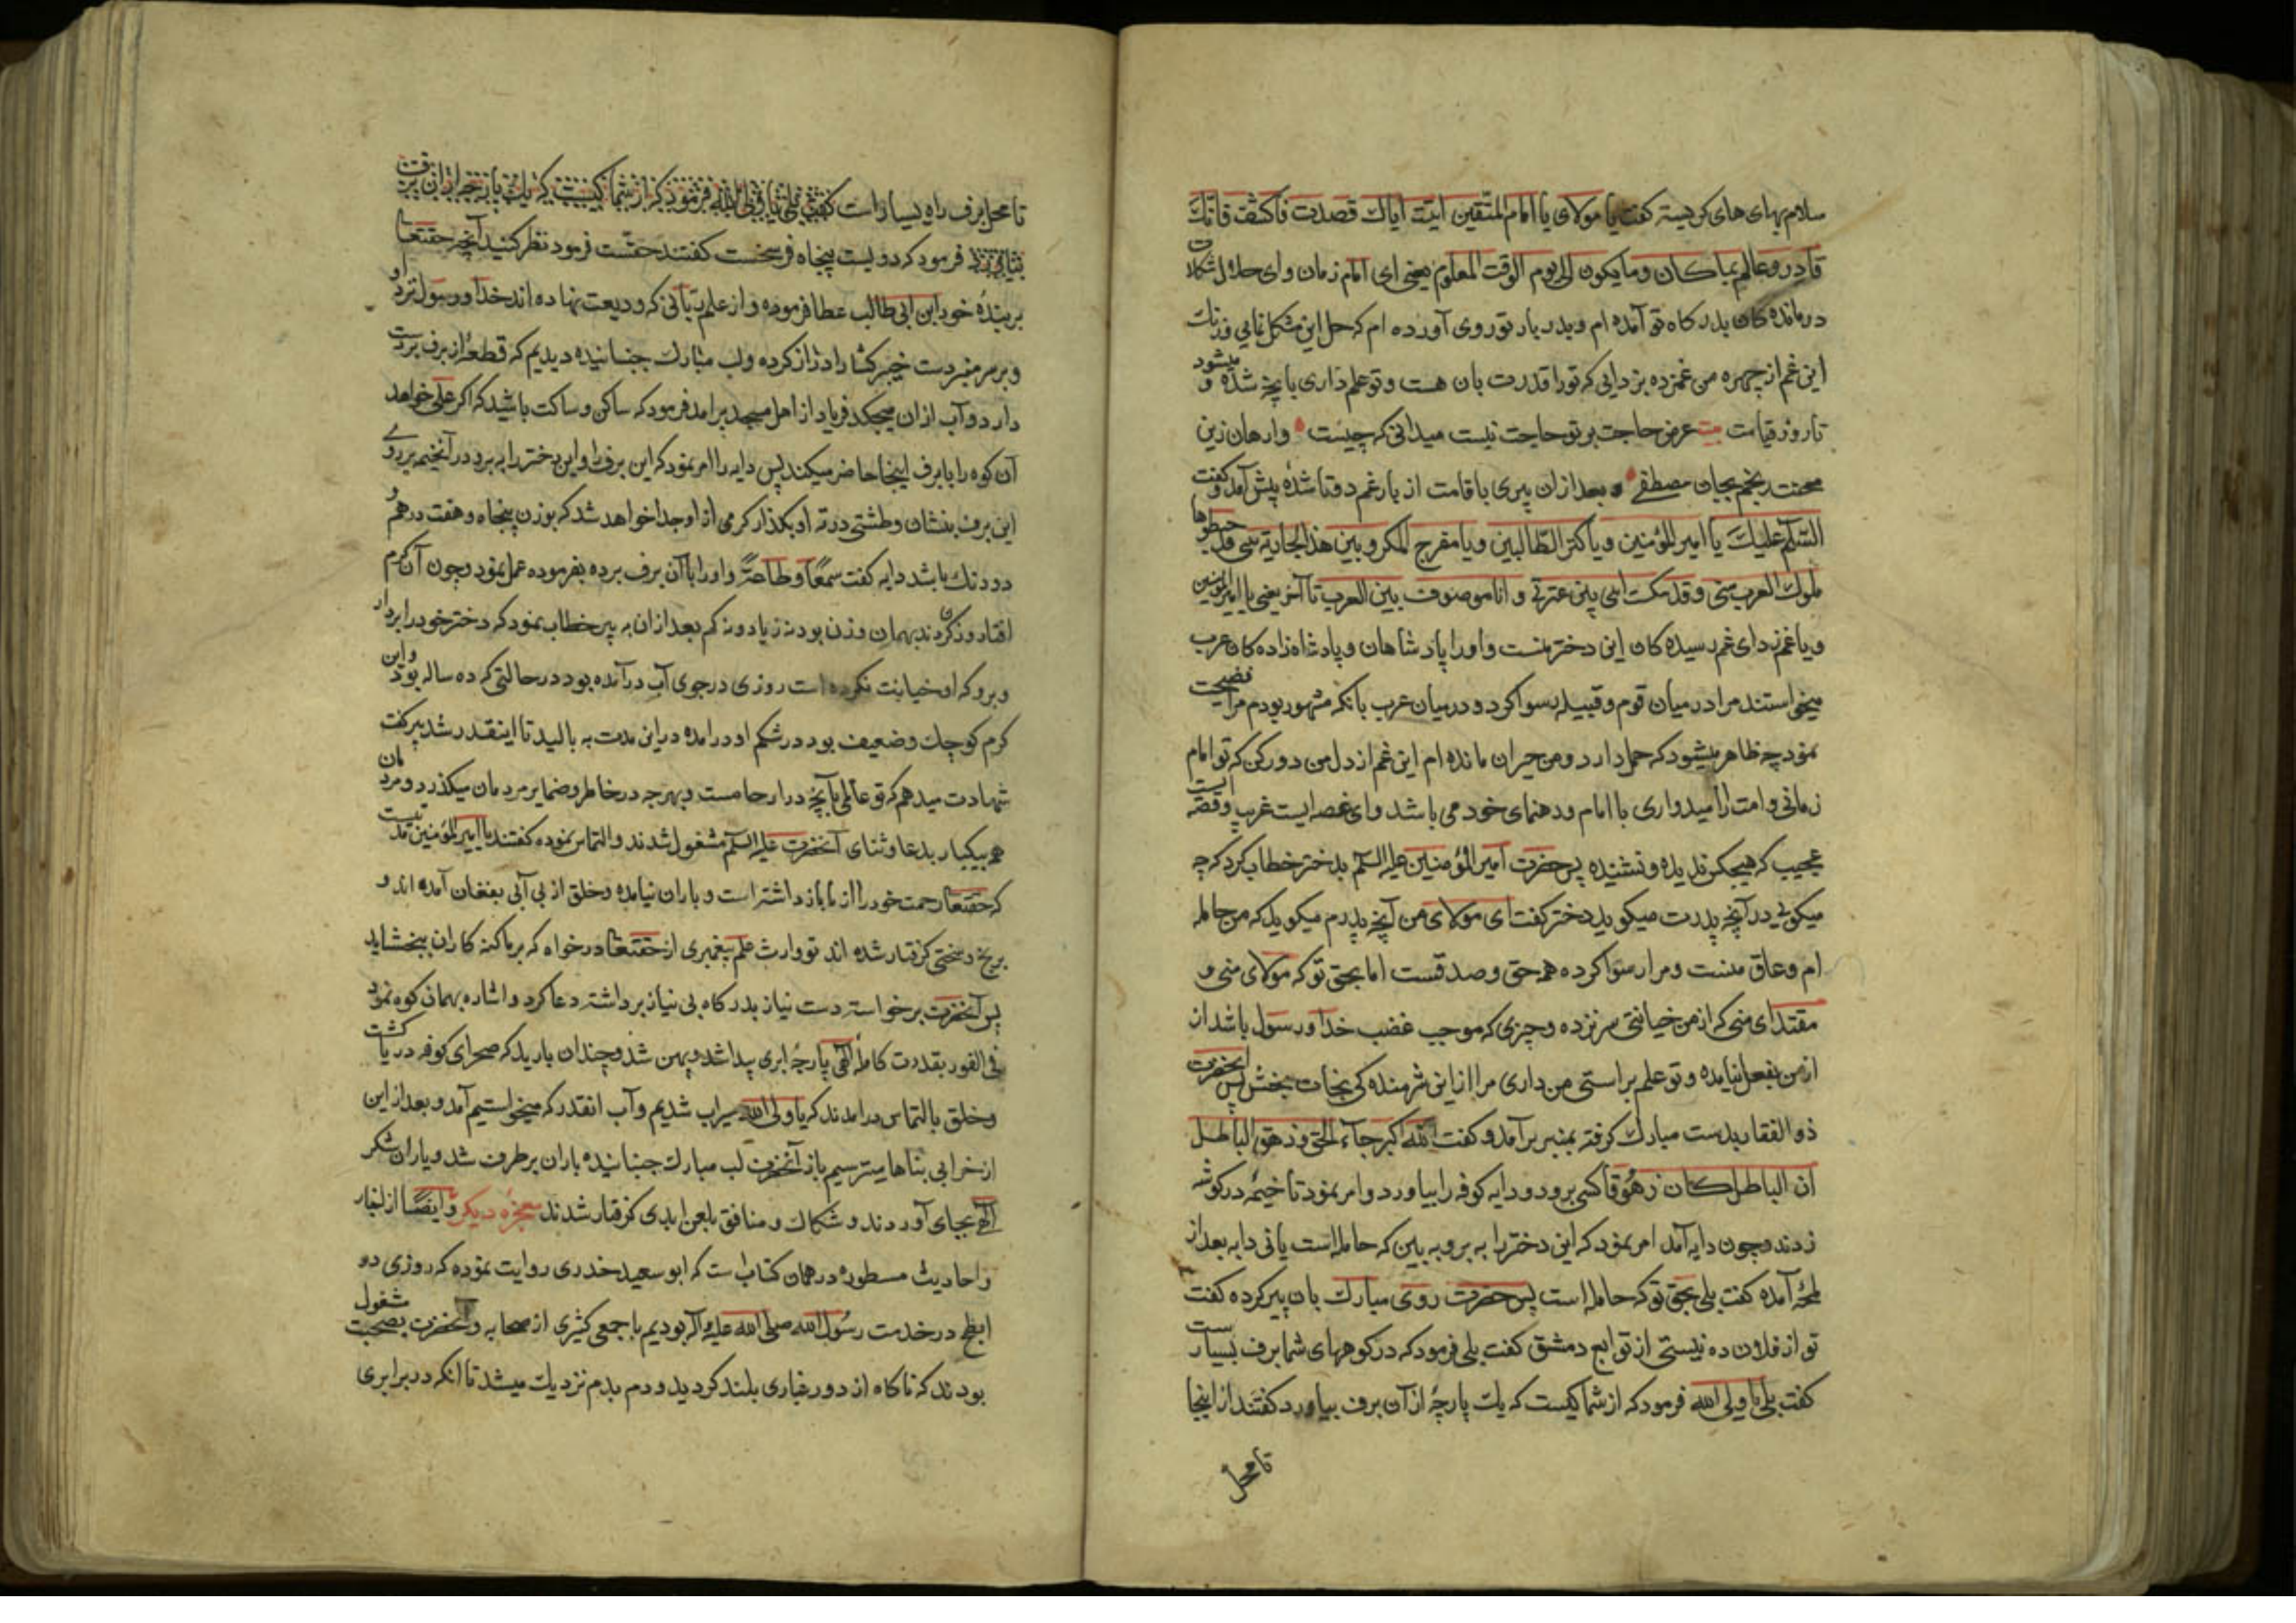 سلام بهای های کریسته کفت یا مولای یا امام المتقین اتیت ایاك قصدت فاکشف فانك
قادر وعالم بماکان وما یکون الی یوم الوقت المعلوم یعنی ای امام زمان وای حلال مشکلات
درمانده کان بدرکاه تو آمده ام وبدربار تو روی آورده ام که حل این مشکل نمایی وزنك
این غم از چهره من غمزده بزدایی که تورا قدرت بان هست وتو علم داری بانچه شده و میشود
تا روز قیامت بیت عرض حاجت بر تو حاجت نیست میدانی که چیست وارهان زین
محنت رنجم بجان مصطفی و بعد ازان پیری با قامت از بار غم دوتا شده پیش آمد وکفت
السلام علیك یا امیر المؤمنین ویا کنز الطالبین ویا مفرج المکروبین هذا الجایة بنتی قد خطبوها
ملوك العرب منی وقد نکست راسی بین عترتی وانا موصوف بین العرب تا آخر یعنی یا امیر المؤمنین
ویا غمزدای غم رسیده کان این دختر منست واورا پادشاهان وپادشاه زاده کان عرب
میخواستند مرا در میان قوم وقبیله رسوا کرد ودر میان عرب بانکه مشهور بودم مرا فضیحت
نمود چه ظاهر میشود که حمل دارد ومن حیران مانده ام این غم از دل من دور کن که تو امام
زمانی وامت را امیدواری با امام ورهنمای خود می باشد وای غصه ایست غریب وقصه ایست
عجیب که هیچکس ندیده ونشنیده پس حضرت امیر المؤمنین علیه السلام بدختر خطاب کرد که چه
میکویی در آنچه پدرت میکوید دختر کفت ای مولای من آنچه پدرم میکوید که من حامله
ام وعاق منست ومرا رسوا کرده همه حق وصدقست اما بحق تو که مولای منی و
مقتدای منی که از من خیانتی سر نزده وچیزی که موجب غضب خدا ورسول باشد از
از من بفعل نیامده وتو علم براستی من داری مرا از این شرمنده کی نجات بخش پس آنحضرت
ذوالفقار بدست مبارك کرفته بمنبر برآمد وکفت الله اکبر جاء الحق وزهق الباطل
ان الباطل کان زهوقا کسی برود ودایه کوفه را بیاورد وامر نمود تا خیمه در کوشه
زدند وچون دایه آمد امر نمود که این دختر را ببر وبه بین که حامله است یا نی دایه بعد از
لمحه آمده کفت بلی بحق تو که حامله است پس حضرت روی مبارك بان پیر کرده کفت
تو از فلان ده نیستی از توابع دمشق کفت بلی فرمود که در کوههای شما برف بسیار ست
کفت بلی یا ولی الله فرمود که از شما کیست که یك پارچه از آن برف بیاورد کفتند از اینجا
تا محل
تا محل برف راه بسیار است کفت بلی یا ولی الله فرمود که از شما کیست که یك پارچه ازان برف
بیاورد فرمود که دویست پنجاه فرسخست کفتند حقست فرمود نظر کنید آنچه حقتعالی
بر بندهٔ خود ابن ابی طالب عطا فرموده واز علم ربانی که ودیعت نهاده اند خدا ورسول نزد او
وبر سر منبر دست خیبر کشا را دراز کرده ولب مبارك جنبانیده دیدیم که قطعهٔ از برف بردست
دارد وآب ازان میچکد فریاد از اهل مسجد برامد فرمود که ساکن وساکت باشید که اکر علی خواهد
آن کوه را با برف اینجا حاضر میکند پس دایه را امر نمود که این برف را واین دختر را ببر ودر آنخیمه بر روی
این برف بنشان وطشتی در ته او بکذار کرمی از او جدا خواهد شد که بوزن پنجاه وهفت درهم و
دو دنك باشد دایه کفت سمعا وطاعة واورا با آن برف برده بفرموده عمل نمود وچون آن کرم
افتاد وزن کردند بهمان وزن بود نه زیاد ونه کم بعد ازان به پیر خطاب نمود که دختر خود را بردار
وبرو که او خیانت نکرده است روزی در جوی آب درآمده بود در حالتی که ده ساله بود واین
کرم کوچك وضعیف بود در شکم او درامده در این مدت به بالید تا اینقدر شد پیر کفت
شهادت میدهم که تو عالمی بآنچه در ارحامست وبهر چه در خاطر وضمایر مردمان میکذرد ومردمان
همه بیکبار بدعا وثنای آنحضرت علیه السلام مشغول شدند والتماس نموده کفتند یا امیر المؤمنین مدتیست
که حقتعالی رحمت خود را از ما باز داشته است وباران نیامده وخلق از بی آبی بفغان آمده اند و
برنج وسختی کرفتار شده اند تو وارث علم پیغمبری از حقتعالی درخواه که بر ما کنه کاران ببخشاید
پس آنحضرت برخواسته دست نیاز بدرکاه بی نیاز برداشته دعا کرد واشاره بهمان کوه نمود
فی الفور بقدرت کامله الهی پارچهٔ ابری پیدا شد وپهن شد وچندان بارید که صحرای کوفه دریا کشت
وخلق بالتماس درامدند که یا ولی الله سیراب شدیم وآب انقدر که میخواستیم آمد وبعد از این
از خرابی بناها میترسیم باز آنحضرت لب مبارك جنبانیده باران برطرف شد ویاران شکر
الهی بجای آوردند وشکاك ومنافق بلعن ابدی کرفتار شدند معجزهٔ دیکر وایضا از اخبار
واحادیث مسطوره در همان کتاب است که ابو سعید خدری روایت نموده که روزی در
ابطح در خدمت رسول الله صلی الله علیه وآله بودیم با جمعی کثیری از صحابه وآنحضرت بصحبت مشغول
بودند که ناکاه از دور غباری بلند کردید ودم بدم نزدیك میشد تا انکه در برابری